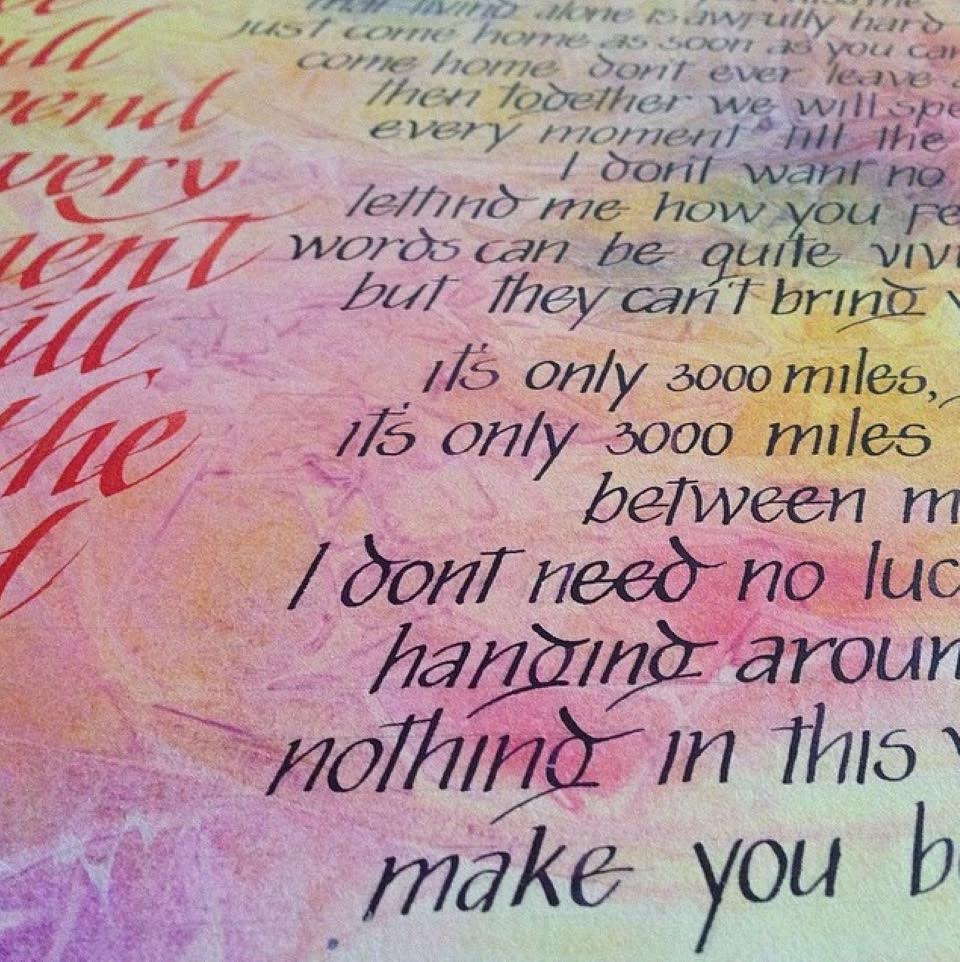 ill
pend
very
ment
till
the
that living alone is awfully hard
just come home as soon as you can
come home don't ever leave
then together we will spe
every moment till the
I don't want no
letting me how you fe
words can be quite vivi
but they can't bring
it's only 3000 miles,
it's only 3000 miles
between m
I dont need no luc
hanging aroun
nothing in this
make you be